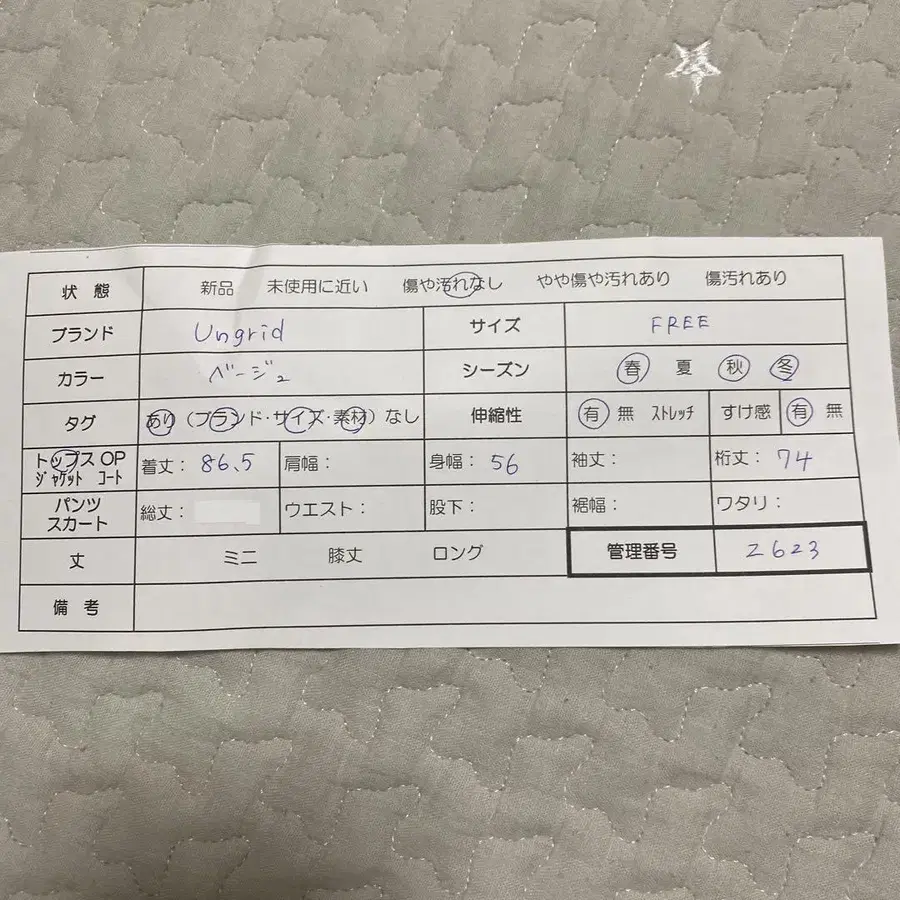 状態 新品 未使用に近い 傷や汚れなし やや傷や汚れあり 傷汚れあり
ブランド Ungrid サイズ FREE
カラー ベージュ シーズン 春 夏 秋 冬
タグ あり(ブランド・サイズ・素材)なし 伸縮性 有 無 ストレッチ すけ感 有 無
トップス OP
ジャケット コート
着丈: 86.5 肩幅: 身幅: 56 袖丈: 裄丈: 74
パンツ
スカート
総丈: ウエスト: 股下: 裾幅: ワタリ:
丈 ミニ 膝丈 ロング 管理番号 2623
備考